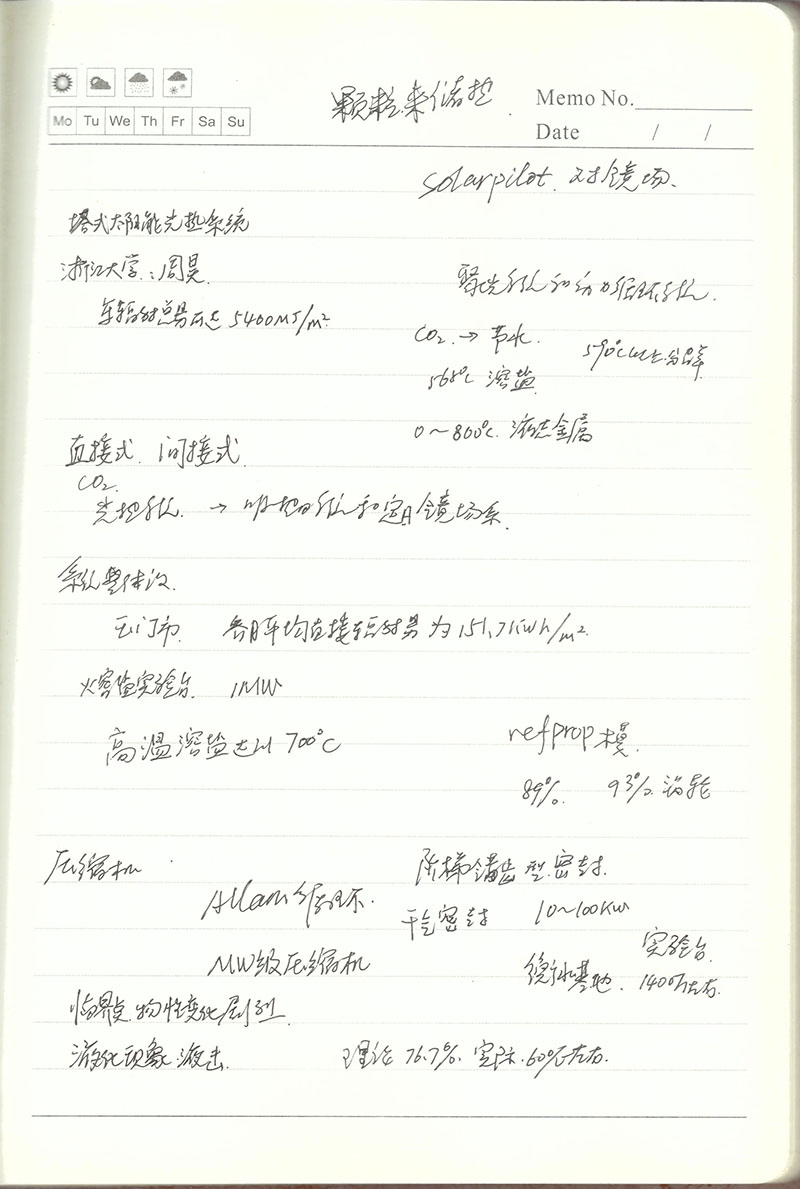 Mo Tu We Th Fr Sa Su
颗粒来储热
Memo No.
Date / /
solarpilot 对镜场、
塔式太阳能光热系统
浙江大学：周昊
聚光系统和动力循环系统.
年辐射总量大于 5400MJ/m²
CO₂ → 节水.
590℃以上分解
565℃ 溶盐
0～800℃. 液态金属
直接式、间接式
CO₂
光热系统 → 吸热系统和定日镜场系
系统整体设
玉门市 各月平均直接辐射量为151.7kWh/m².
火容盐实验台 1MW
高温溶盐达以 700℃
refprop 模
89%. 93%. 涡轮
压缩机
Allam循环.
阶梯错齿型密封.
干气密封 10～100KW
MW级压缩机
实验台
衡水基地. 140万左右.
临界点物性变化剧烈
液化现象 液击.
理论 76.7%. 实际.60%左右.